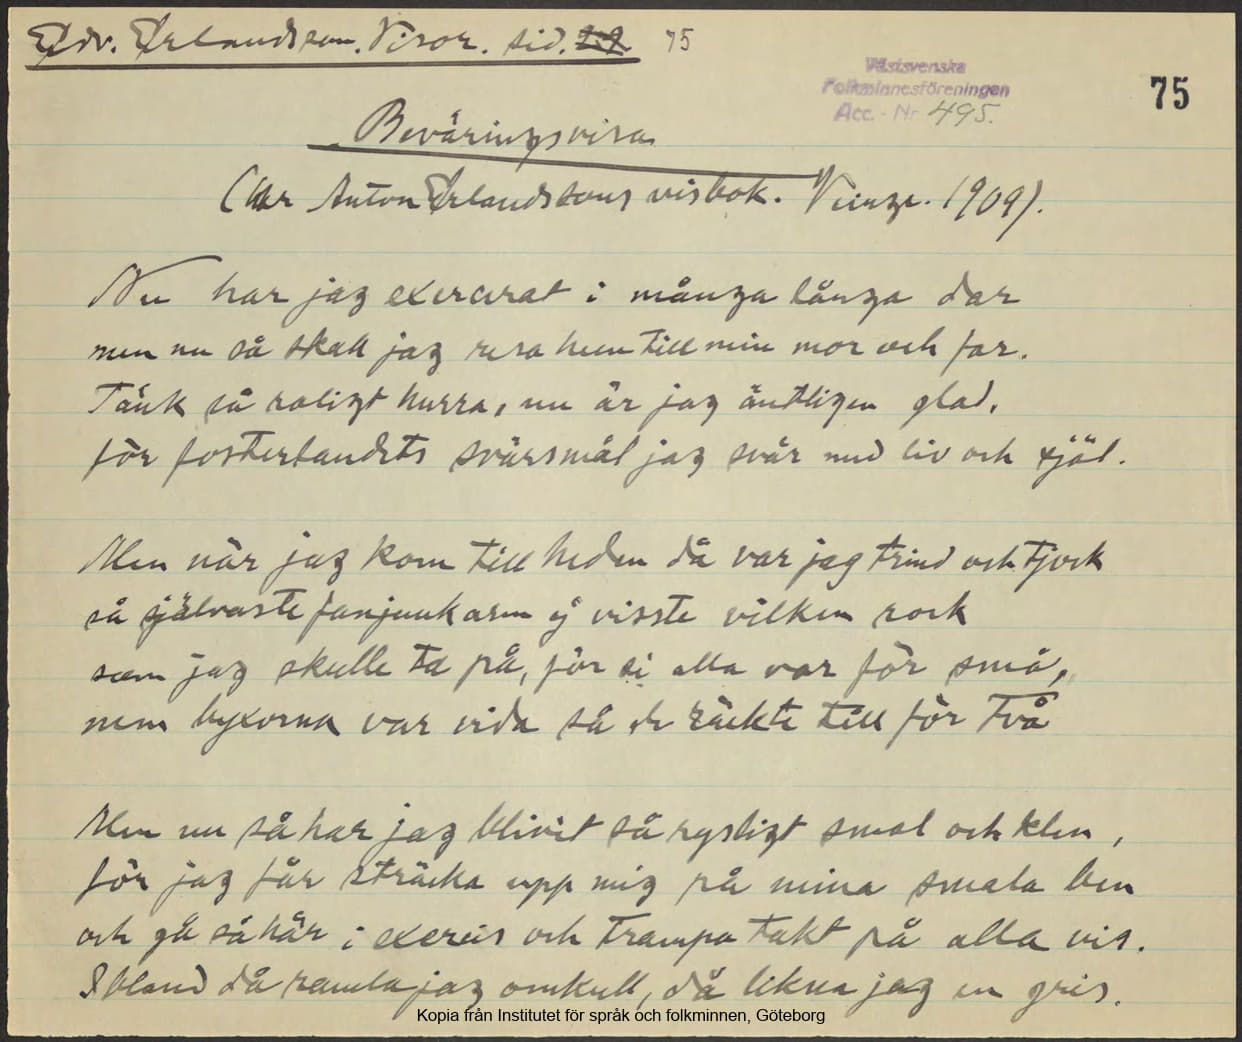 Edv. Erlandsson. Visor. sid. 75
Västsvenska
Folkminnesföreningen
Acc. - Nr 495.
75
Beväringsvisa
(ur Anton Erlandssons visbok. Vinga. 1909).
Nu har jag exercerat i många långa dar
men nu så skall jag resa hem till min mor och far.
Tänk så roligt hurra, nu är jag äntligen glad,
för fosterlandets svärsmål jag svär med liv och själ.
Men när jag kom till heden då var jag trind och tjock
så självaste fanjunkaren ej visste vilken rock
som jag skulle ta på, för si alla var för små,
men byxorna var vida så de räckte till för två
Men nu så har jag blivit så rysligt smal och klen,
för jag får sträcka upp mig på mina smala ben
och gå så här i exercis och trampa takt på alla vis.
Ibland då ramla jag omkull, då likna jag en gris.
Kopia från Institutet för språk och folkminnen, Göteborg